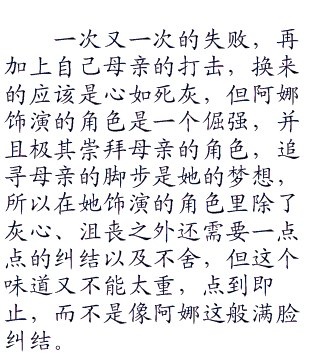 一次又一次的失败，再
加上自己母亲的打击，换来
的应该是心如死灰，但阿娜
饰演的角色是一个倔强，并
且极其崇拜母亲的角色，追
寻母亲的脚步是她的梦想，
所以在她饰演的角色里除了
灰心、沮丧之外还需要一点
点的纠结以及不舍，但这个
味道又不能太重，点到即
止，而不是像阿娜这般满脸
纠结。